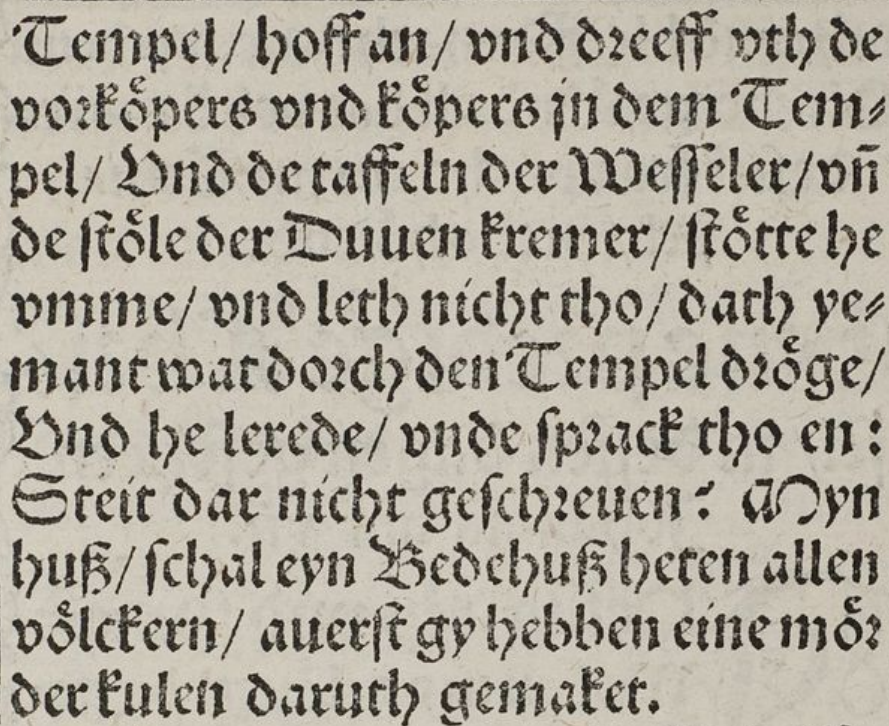 Tempel/ hoff an/ vnd dreeff vth de
vorkoͤpers vnd koͤpers jn dem Tem⸗
pel/ Vnd de taffeln der Wesseler/ vn̄
de stoͤle der Duuen kremer/ stoͤtte he
vmme/ vnd leth nicht tho/ dath ye⸗
mant wat dorch den Tempel droͤge/
Vnd he lerede/ vnde sprack tho en:
Steit dar nicht geschreuen? Myn
huß/ schal eyn Bedehuß heten allen
voͤlckern/ auerst gy hebben eine moͤr
der kulen daruth gemaket.